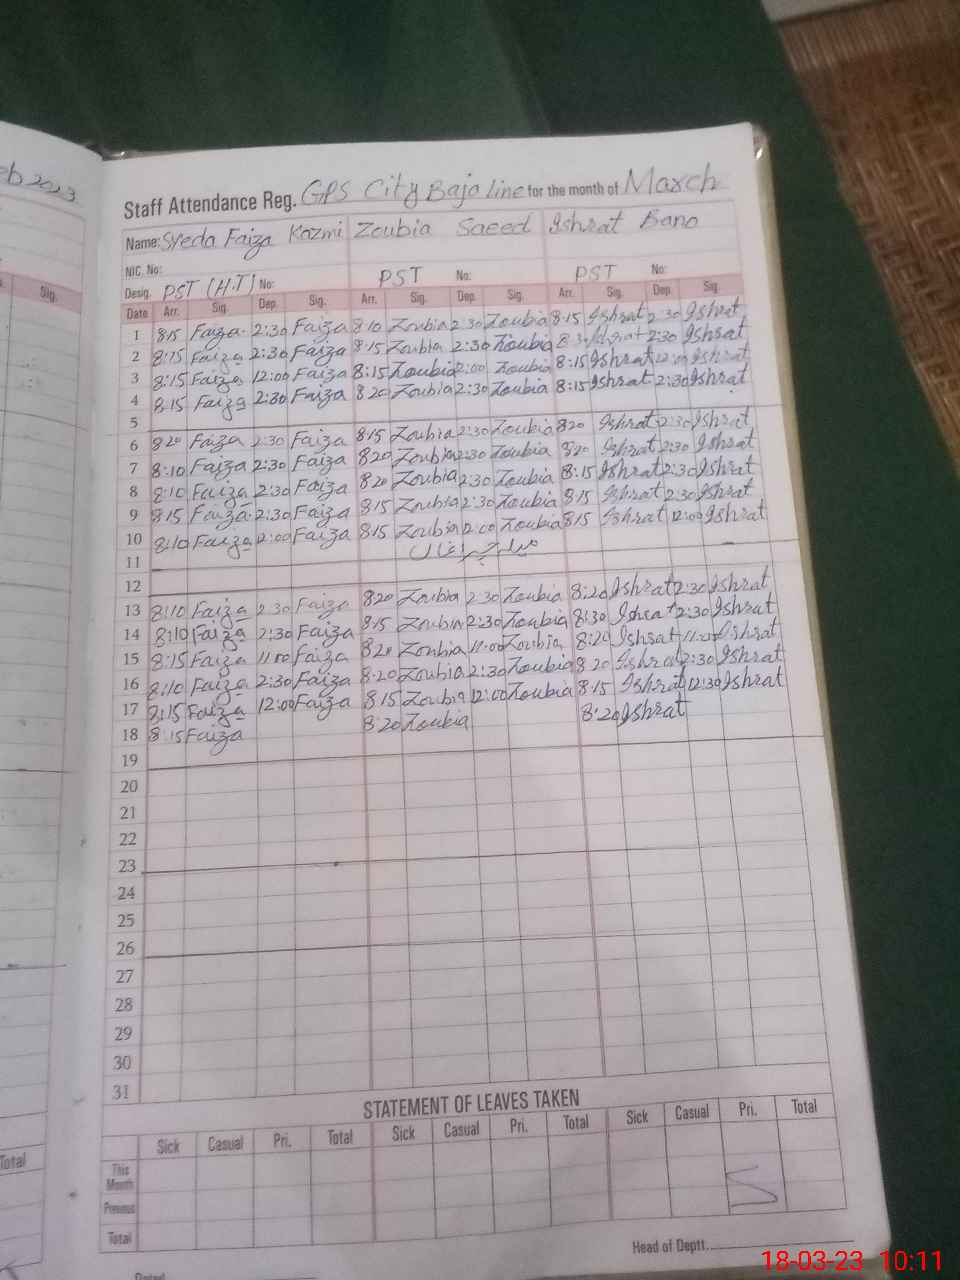 eb 2023
Sig.
Staff Attendance Reg. GPS City Bajo line for the month of March
Name: Syeda Faiza Kazmi Zoubia Saeed Ishrat Bano
NIC. No:
Desig. PST (H.T) No: PST No: PST No:
Date Arr. Sig. Dep. Sig. Arr. Sig. Dep. Sig. Arr. Sig. Dep. Sig.
1 8:15 Faiza 2:30 Faiza 8:10 Zoubia 2:30 Zoubia 8:15 Ishrat 2:30 Ishrat
2 8:15 Faiza 2:30 Faiza 8:15 Zoubia 2:30 Zoubia Ishrat 2:30 Ishrat
3 8:15 Faiza 12:00 Faiza 8:15 Zoubia Zoubia 8:15 Ishrat 12:00 Ishrat
4 8:15 Faiza 2:30 Faiza 8 20 Zoubia 2:30 Zoubia 8:15 Ishrat 2:30 Ishrat
5
6 8 20 Faiza 2:30 Faiza 8:15 Zoubia 2:30 Zoubia 8:20 Ishrat 2:30 Ishrat
7 8:10 Faiza 2:30 Faiza 8 20 Zoubia 2:30 Zoubia 8:20 Ishrat 2:30 Ishrat
8 8:10 Faiza 2:30 Faiza 8 20 Zoubia 2:30 Zoubia 8:15 Ishrat 2:30 Ishrat
9 8:15 Faiza 2:30 Faiza 8:15 Zoubia 2:30 Zoubia 8:15 Ishrat 2:30 Ishrat
10 8:10 Faiza 12:00 Faiza 8:15 Zoubia 12:00 Zoubia 8:15 Ishrat 12:00 Ishrat
11 میلہ چراغاں
12
13 8:10 Faiza 2:30 Faiza 8:20 Zoubia 2:30 Zoubia 8:20 Ishrat 2:30 Ishrat
14 8:10 Faiza 2:30 Faiza 8:15 Zoubia 2:30 Zoubia 8:30 Ishrat 2:30 Ishrat
15 8:15 Faiza 11:00 Faiza 8:20 Zoubia 11:00 Zoubia 8:20 Ishrat 11:00 Ishrat
16 8:10 Faiza 2:30 Faiza 8:20 Zoubia 2:30 Zoubia 8 20 Ishrat 2:30 Ishrat
17 8:15 Faiza 12:00 Faiza 8:15 Zoubia 12:00 Zoubia 8:15 Ishrat 12:30 Ishrat
18 8:15 Faiza 8:20 Zoubia 8:20 Ishrat
19
20
21
22
23
24
25
26
27
28
29
30
31
STATEMENT OF LEAVES TAKEN
Sick Casual Pri. Total Sick Casual Pri. Total Sick Casual Pri. Total
This Month
Previous
Total
Total
Head of Deptt.
Dated
18-03-23 10:11